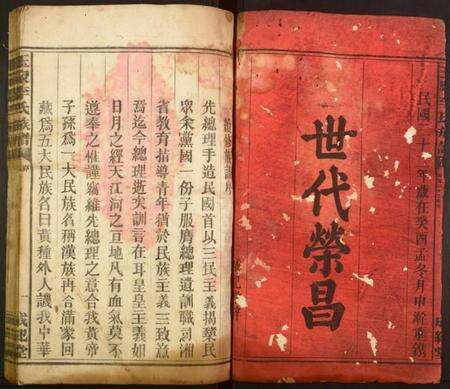 民國二十二年歲在癸酉孟冬月中澣重鐫
世代榮昌
續修族譜序
先總理手造民國首以三民主義揭櫫民
眾余黨國一份子服膺總理遺訓職司湘
省教育指導青年猶於民族主義三致意
焉迄今總理逝矣訓言在耳皇皇主義如
日月之經天江河之亘地凡有血氣莫不
遵奉之惟謹竊維先總理之意合我黃帝
子孫爲一大民族名稱漢族再合滿蒙回
藏爲五大民族名曰黃種外人譏我中華
李氏族譜
序
一